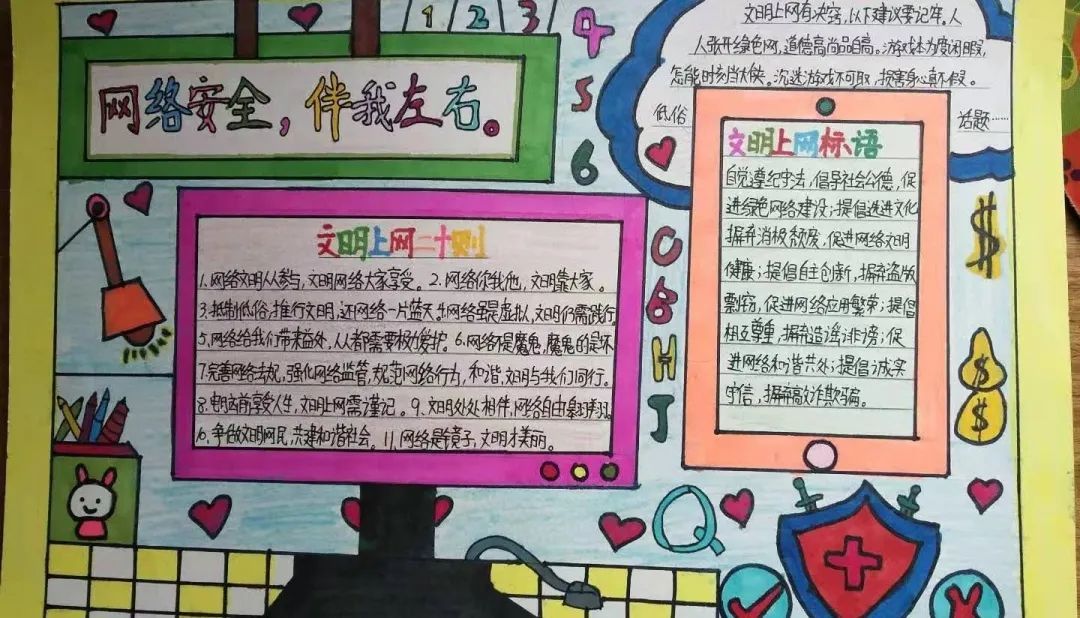 1 2 3
4
5
6
C
B
H
J
Q
网络安全，伴我左右。
文明上网有决窍，以下建议要记牢。人
人张开绿色网，道德高尚品自高。游戏本为度闲暇，
怎能时刻当大侠。沉迷游戏不可取，损害身心真不假。
低俗
话题……
文明上网二十则
1.网络文明人人参与，文明网络大家享受。2.网络你我他，文明靠大家。
3.抵制低俗，推行文明，还网络一片蓝天。4.网络虽是虚拟，文明仍需践行
5.网络给我们带来益处，人人都需要极力爱护。6.网络不是魔鬼，魔鬼的是坏
7.完善网络法规，强化网络监管，规范网络行为，和谐，文明与我们同行。
8.电脑前享受人生，文明上网需谨记。9.文明处处相伴，网络自由
10.争做文明网民，共建和谐社会。11.网络是镜子，文明才美丽。
文明上网标语
自觉遵纪守法，倡导社会公德，促
进绿色网络建设；提倡先进文化
摒弃消极颓废，促进网络文明
健康；提倡自主创新，摒弃盗版
剽窃，促进网络应用繁荣；提倡
相互尊重，摒弃造谣诽谤；促
进网络和谐共处；提倡诚实
守信，摒弃欺诈欺骗。
$
$
$